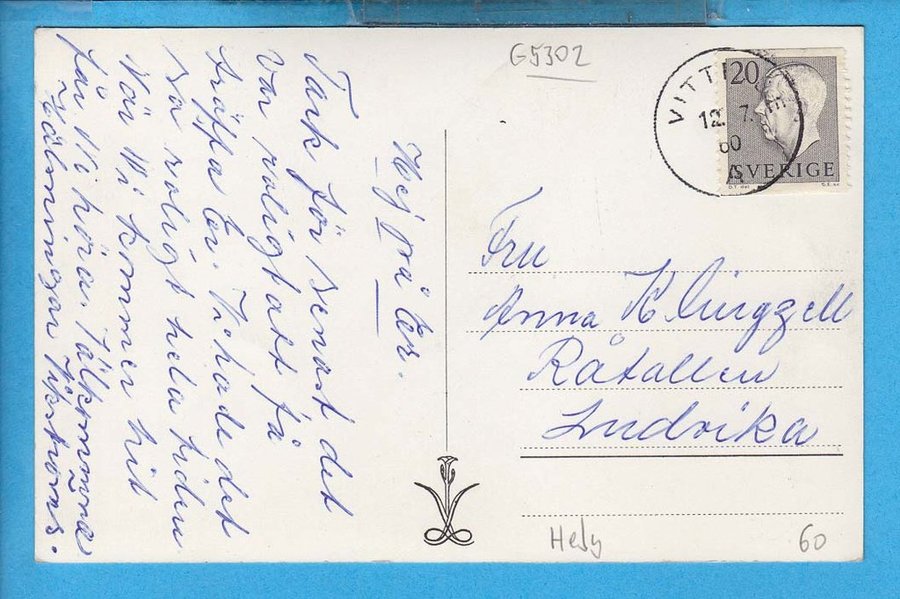 G5302
VITT
12. 7.
60
A
20
SVERIGE
Hej på Er.
Tack för senast det
var roligt att få
träffa Er. Vi hade det
så roligt hela tiden
När Vi kommer hit
får Ni höra. Välkomna
Hälsningar
Fru
Anna Klingzell
Råtallen
Ludvika
Hedy
60